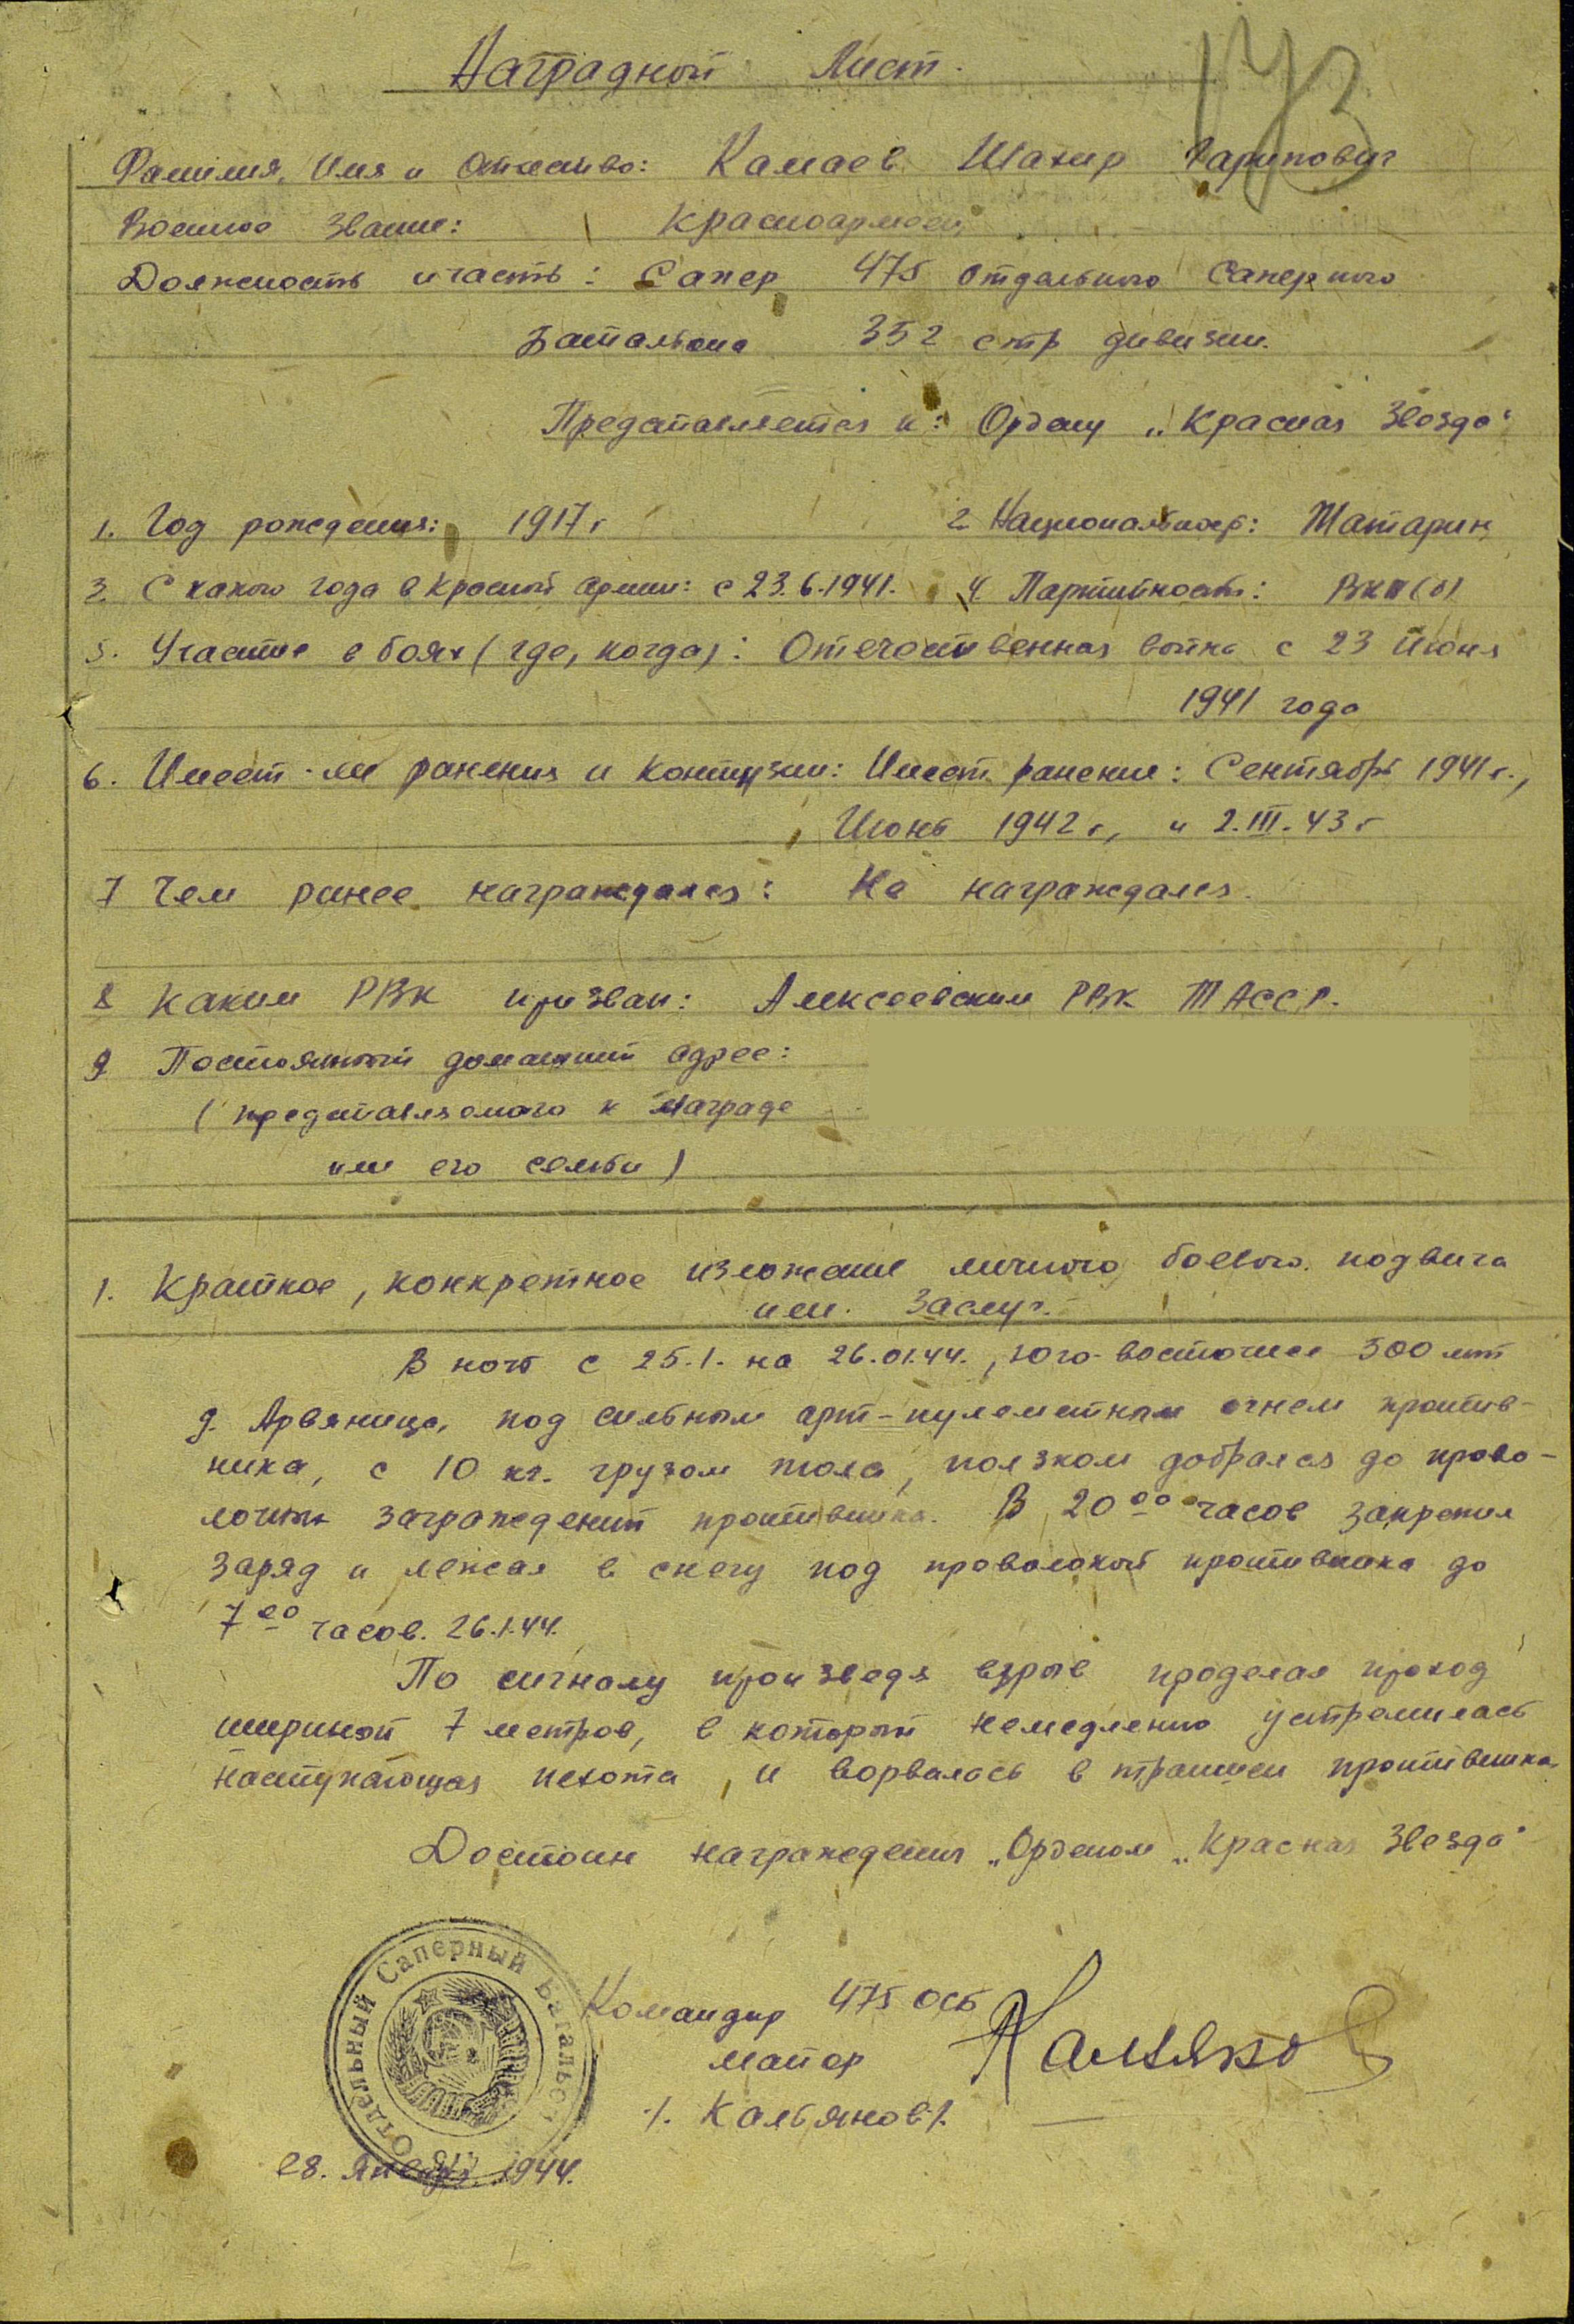 Наградной Лист.
173
Фамилия, Имя и Отчество: Камаев Шакир Гарипович
Военное звание: Красноармеец
Должность и часть: Сапер 475 отдельного Саперного
Батальона 352 стр дивизии.
Представляется к: Ордену „Красная Звезда“
1. Год рождения: 1917 г 2 Национальность: Татарин
3. С какого года в Красной армии: с 23.6.1941. 4. Партийность: ВКП(б)
5. Участие в боях (где, когда): Отечественная война с 23 Июня
1941 года
6. Имеет-ли ранения и контузии: Имеет ранение: Сентябрь 1941 г.,
Июнь 1942 г., и 2.III.43 г
7 Чем ранее награждался: Не награждался.
8 Каким РВК призван: Алексеевским РВК ТАССР.
9 Постоянный домашний адрес:
(представляемого к награде
или его семьи)
1. Краткое, конкретное изложение личного боевого подвига
или заслуг.
В ночь с 25.1. на 26.01.44., юго-восточнее 500 мт
д. Арвяница, под сильным арт-пулеметным огнем против-
ника, с 10 кг. грузом тола, ползком добрался до прово-
лочных заграждений противника. В 20⁰⁰ часов закрепил
заряд и лежал в снегу под проволокой противника до
7⁰⁰ часов. 26.1.44.
По сигналу произведя взрыв проделал проход
шириной 7 метров, в который немедленно устремилась
наступающая пехота и ворвалась в траншеи противника
Достоин награждения „Орденом „Красная Звезда“
Отдельный Саперный Батальон 475
Командир 475 ОСБ
майор
/. Кальянов./.
28. Января. 1944.